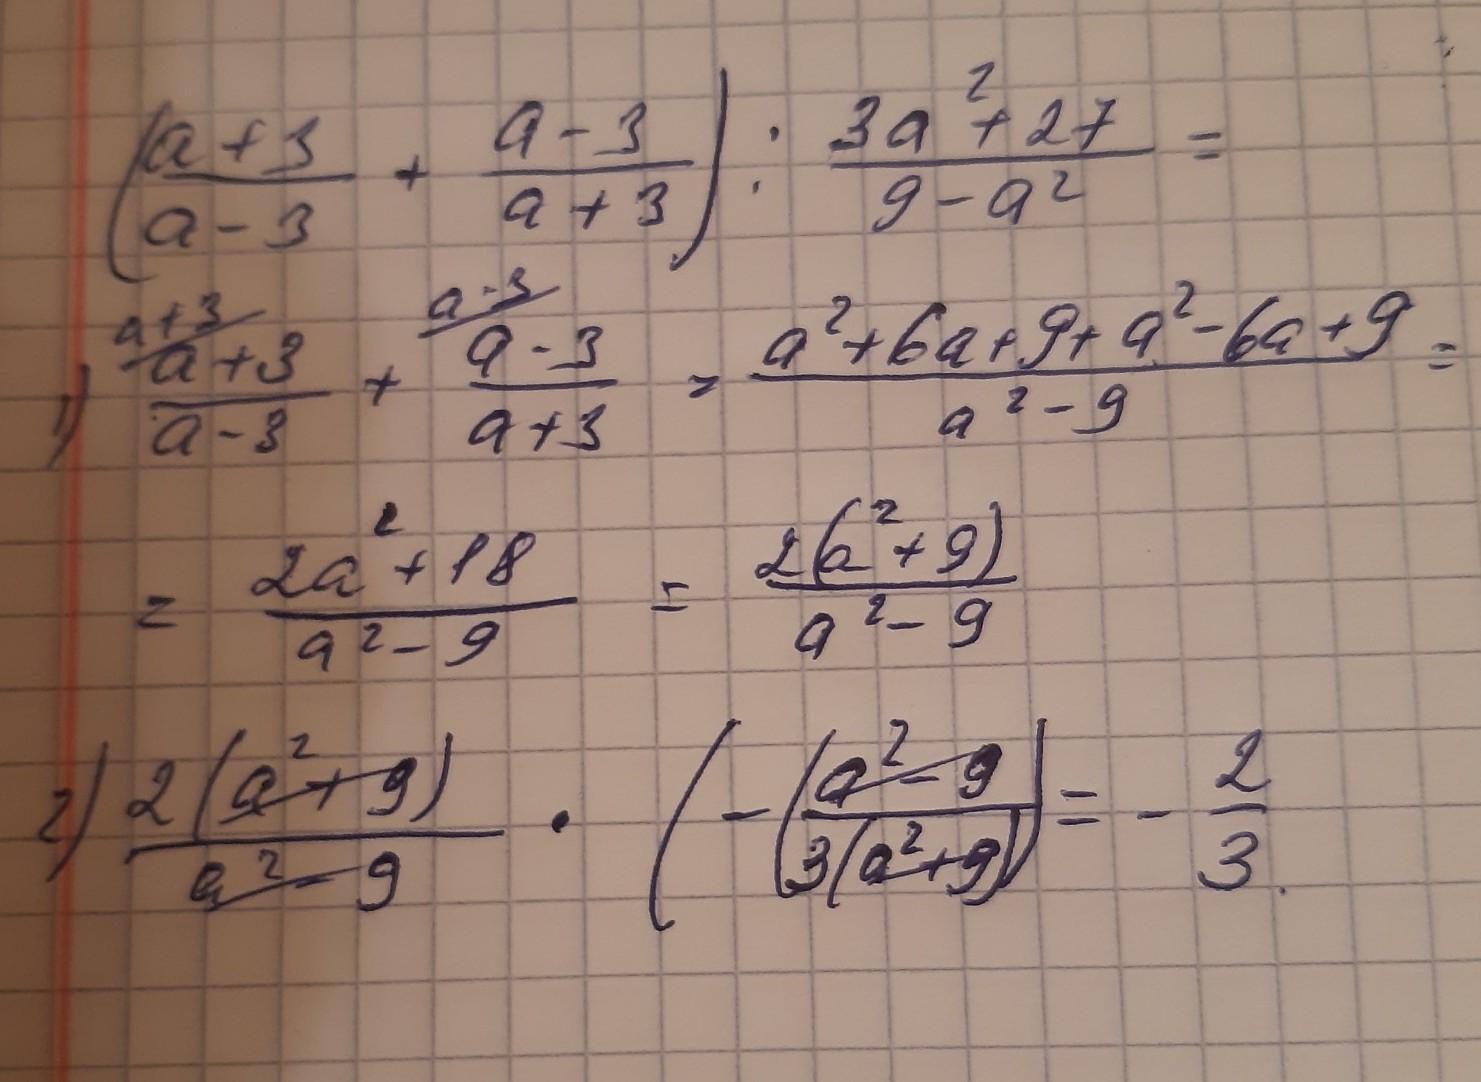 (a+3/a-3 + a-3/a+3) : 3a²+27/9-a² =
1) a+3/ a+3/a-3 + a-3/ a-3/a+3 = a²+6a+9+a²-6a+9/a²-9 =
= 2a²+18/a²-9 = 2(a²+9)/a²-9
2) 2(a²+9)/a²-9 · (-(a²-9/3(a²+9)) = - 2/3.